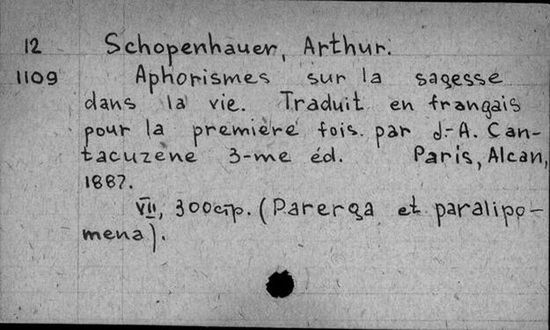 12 Schopenhauer, Arthur.
1109 Aphorismes sur la sagesse
dans la vie. Traduit en français
pour la première fois par J.-A. Can-
tacuzene 3-me éd. Paris, Alcan,
1887.
VII, 300стр. (Parerga et paralipo-
mena).